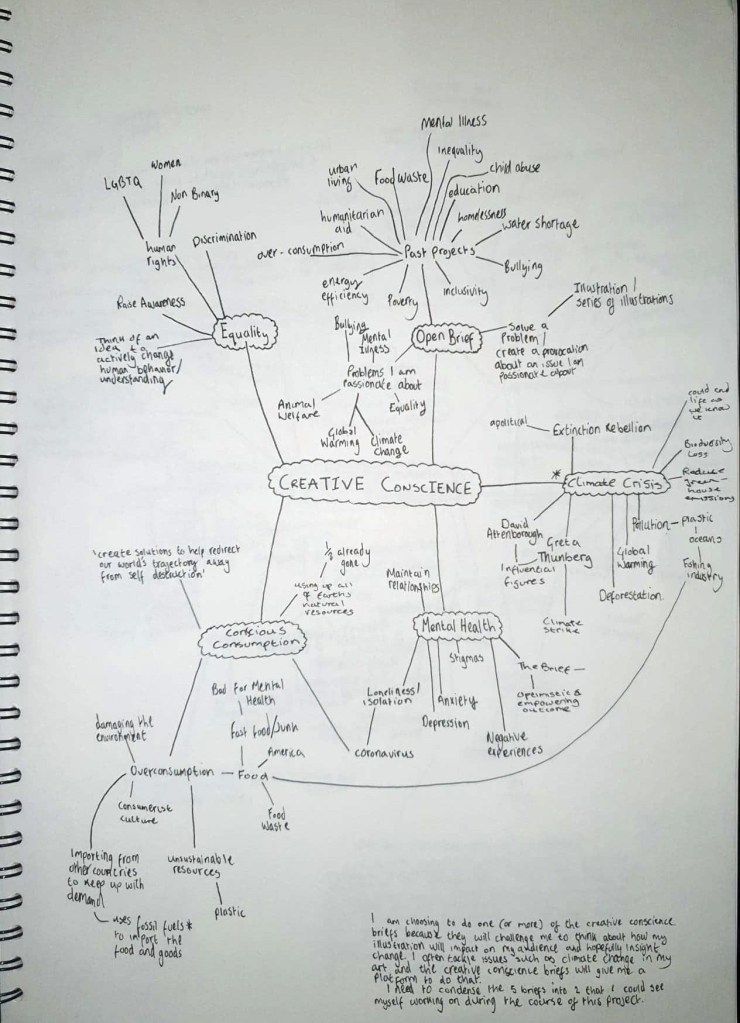 Mental Illness
inequality
child abuse
education
homelessness
water shortage
Bullying
inclusivity
Poverty
energy
efficiency
over-consumption
humanitarian
aid
urban
living
Food Waste
Past Projects
Women
LGBTQ
Non Binary
human
rights
Discrimination
Raise Awareness
Think of an
idea to
actively change
human behavior/
understanding
Equality
Open Brief
Illustration /
series of illustrations
Solve a
Problem /
create a provocation
about an issue I am
passionate about
Bullying
Mental
Illness
Problems I am
passionate about
Animal
Welfare
Global
Warming
Climate
change
Equality
CREATIVE CONSCIENCE
* Climate Crisis
apolitical
Extinction Rebellion
could end
life as
we know
it
Biodiversity
Loss
Reduce
green-
house
emissions
Pollution
plastic
oceans
Fishing
industry
Global
Warming
Deforestation
David
Attenborough
Greta
Thunberg
Influential
figures
Climate
Strike
'create solutions to help redirect
our world's trajectory away
from self destruction'
½ already
gone
using up all
of Earths
natural
resources
conscious
consumption
Maintain
relationships
Mental Health
Stigmas
The Brief
Optimistic &
empowering
outcome
Loneliness/
isolation
Depression
Anxiety
Negative
experiences
coronavirus
Bad For Mental
Health
Fast food/Junk
America
Food
Food
Waste
damaging the
environment
Overconsumption
Consumerist
culture
Importing from
other countries
to keep up with
demand
uses fossil fuels*
to import the
food and goods
unsustainable
resources
plastic
I am choosing to do one (or more) of the creative conscience
briefs because they will challenge me to think about how my
illustration will impact on my audience and hopefully insight
change. I often tackle issues such as climate change in my
art and the creative conscience briefs will give me a
platform to do that.
I need to condense the 5 briefs into 2 that I could see
myself working on during the course of this project.